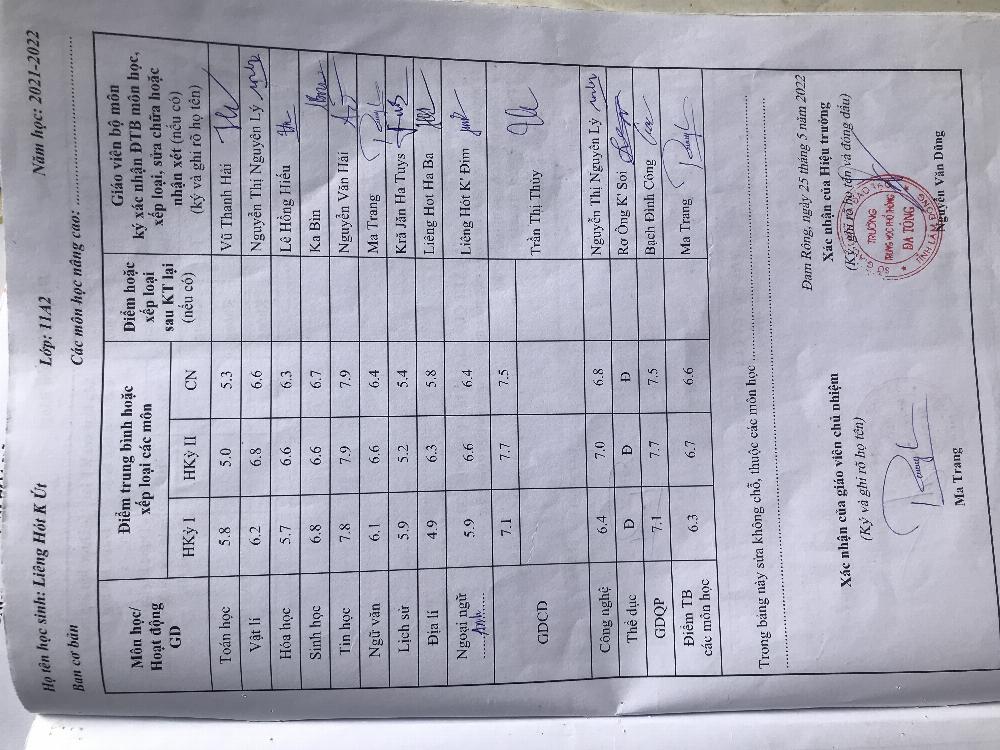 Họ tên học sinh: Liêng Hót K Út Lớp: 11A2 Năm học: 2021-2022
Ban cơ bản Các môn học nâng cao:
Môn học/ Hoạt động GD
Điểm trung bình hoặc xếp loại các môn
HKỳ I HKỳ II CN
Điểm hoặc xếp loại sau KT lại (nếu có)
Giáo viên bộ môn ký xác nhận ĐTB môn học, xếp loại, sửa chữa hoặc nhận xét (nếu có)
(ký và ghi rõ họ tên)
Toán học 5.8 5.0 5.3 Vũ Thanh Hải
Vật lí 6.2 6.8 6.6 Nguyễn Thị Nguyên Lý
Hóa học 5.7 6.6 6.3 Lê Hồng Hiếu
Sinh học 6.8 6.6 6.7 Ka Bin
Tin học 7.8 7.9 7.9 Nguyễn Văn Hải
Ngữ văn 6.1 6.6 6.4 Ma Trang
Lịch sử 5.9 5.2 5.4 Krã Jãn Ha Tuys
Địa lí 4.9 6.3 5.8 Liêng Hot Ha Ba
Ngoại ngữ Anh 5.9 6.6 6.4 Liêng Hót K' Đim
GDCD 7.1 7.7 7.5 Trần Thị Thủy
Công nghệ 6.4 7.0 6.8 Nguyễn Thị Nguyên Lý
Thể dục Đ Đ Đ Rơ Ông K' Soi
GDQP 7.1 7.7 7.5 Bạch Đình Công
Điểm TB các môn học 6.3 6.7 6.6 Ma Trang
Trong bảng này sửa không chỗ, thuộc các môn học
Đam Rông, ngày 25 tháng 5 năm 2022
Xác nhận của giáo viên chủ nhiệm
(Ký và ghi rõ họ tên)
Ma Trang
Xác nhận của Hiệu trưởng
(Ký, ghi rõ họ tên và đóng dấu)
TRƯỜNG
TRUNG HỌC PHỔ THÔNG
ĐẠ TÔNG
TỈNH LÂM ĐỒNG
Nguyễn Văn Dũng